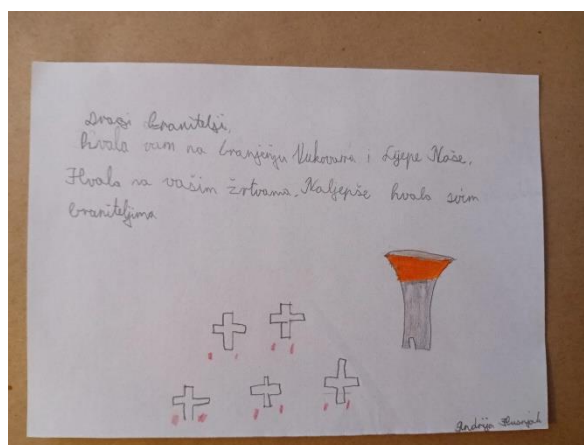 Dragi branitelji,
hvala vam na branjenju Vukovara i Lijepe Naše.
Hvala na vašim žrtvama. Naljepše hvala svim
braniteljima
Andrija